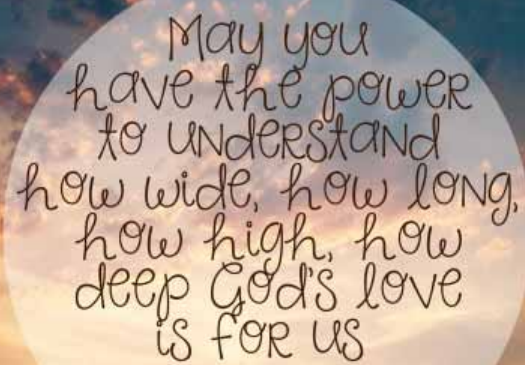 May you
have the power
to understand
how wide, how long,
how high, how
deep God's love
is for us